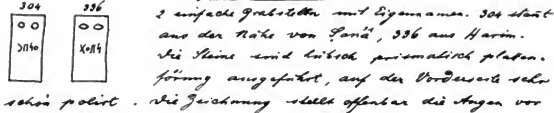 304 336
2 einfache Grabstelen mit Eigennamen. 304 stammt
aus der Nähe von Ṣanʿâ, 336 aus Harim.
Die Steine sind hübsch prismatisch platten-
förmig ausgeführt, auf der Vorderseite sehr
schön polirt. Die Zeichnung stellt offenbar die Augen vor